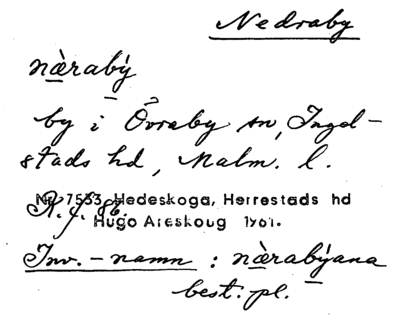 Nedraby
næ̀rabý
by i Övraby sn, Ingel-
stads hd, Malm. l.
Nr 7553, Hedeskoga, Herrestads hd
R. J. 86.
Hugo Areskoug 1961.
Inv.-namn : næ̀rabýana
best. pl.